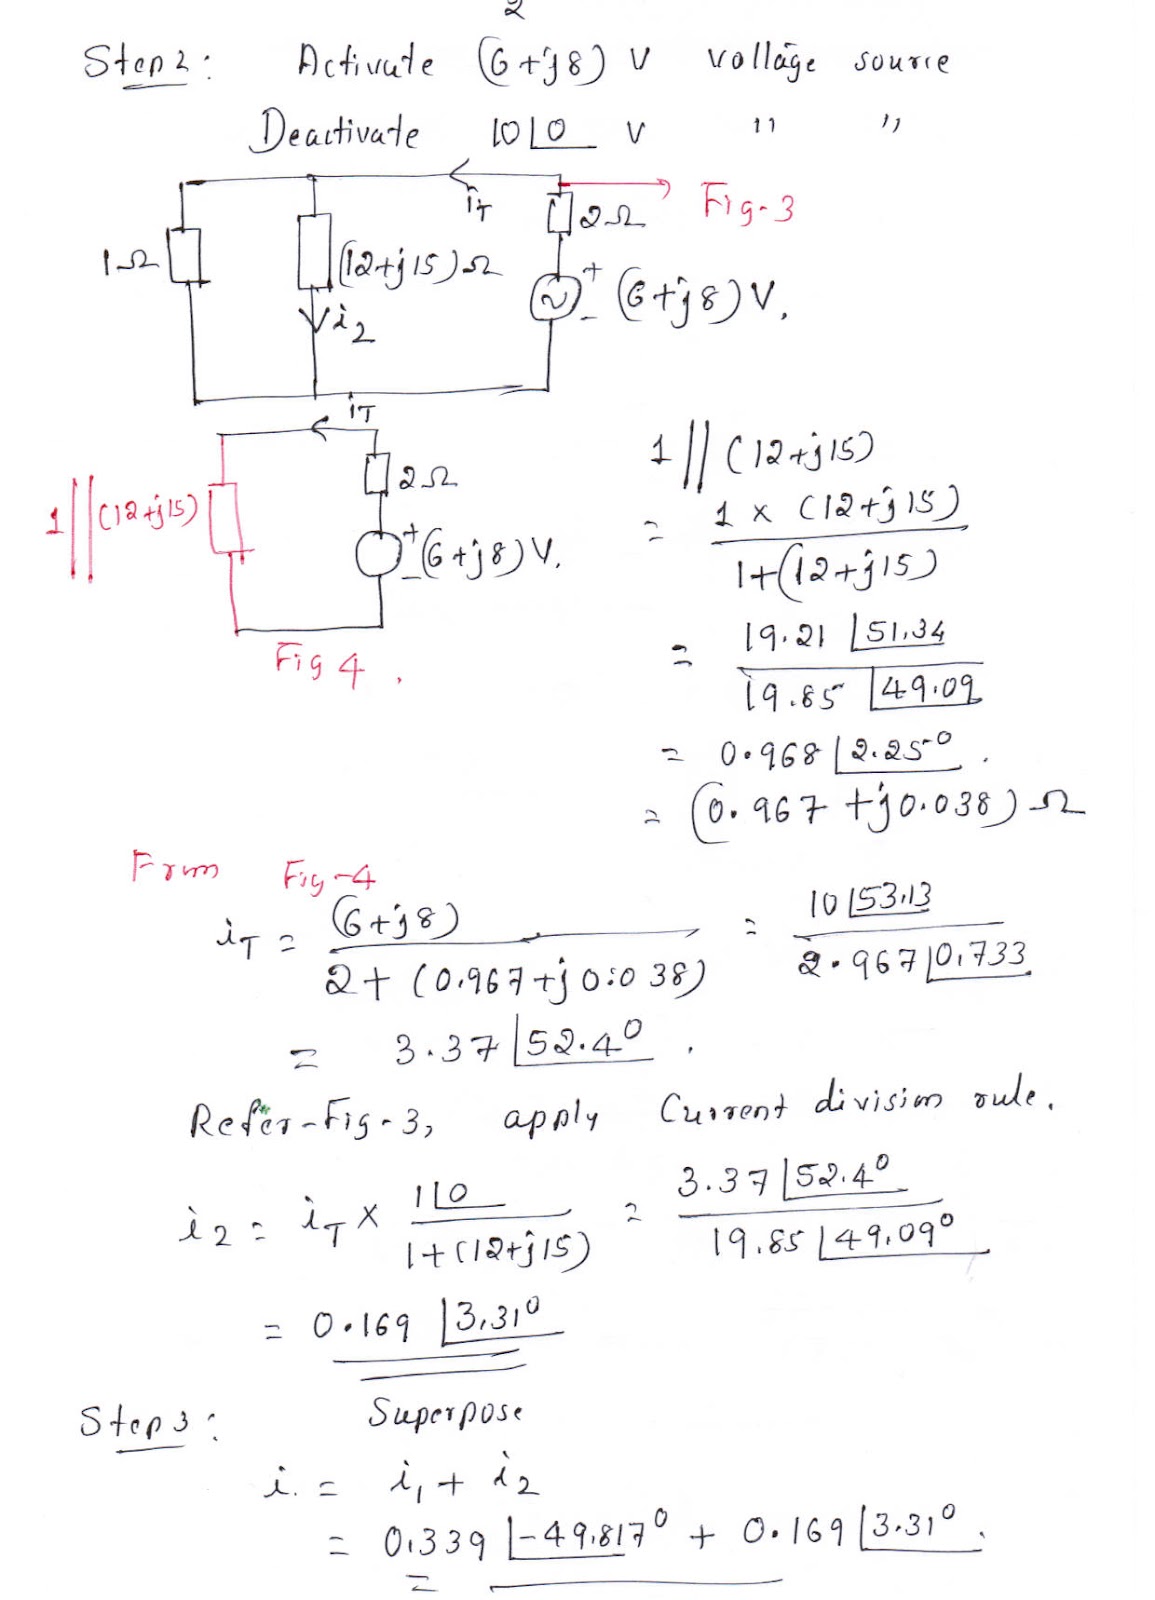 2
Step 2: Activate (6+j8) V voltage source
Deactivate 10∠0 V " "
iT
2Ω
Fig-3
1Ω
(12+j15)Ω
+
(6+j8)V.
-
i2
iT
1||(12+j15)
2Ω
+
(6+j8)V.
-
Fig 4.
1 || (12+j15)
= 1 x (12+j15)
1+(12+j15)
= 19.21 ∠51.34
19.85 ∠49.09
= 0.968 ∠2.25°.
= (0.967 +j0.038) Ω
From Fig-4
iT = (6+j8) = 10∠53.13
2+ (0.967+j0.038) 2.967∠0.733
= 3.37 ∠52.4°.
Refer-Fig-3, apply Current division rule.
i2 = iT x 1∠0 = 3.37∠52.4°
1+(12+j15) 19.85 ∠49.09°
= 0.169 ∠3.31°
Step 3: Superpose
i. = i1 + i2
= 0.339 ∠-49.817° + 0.169 ∠3.31°.
=